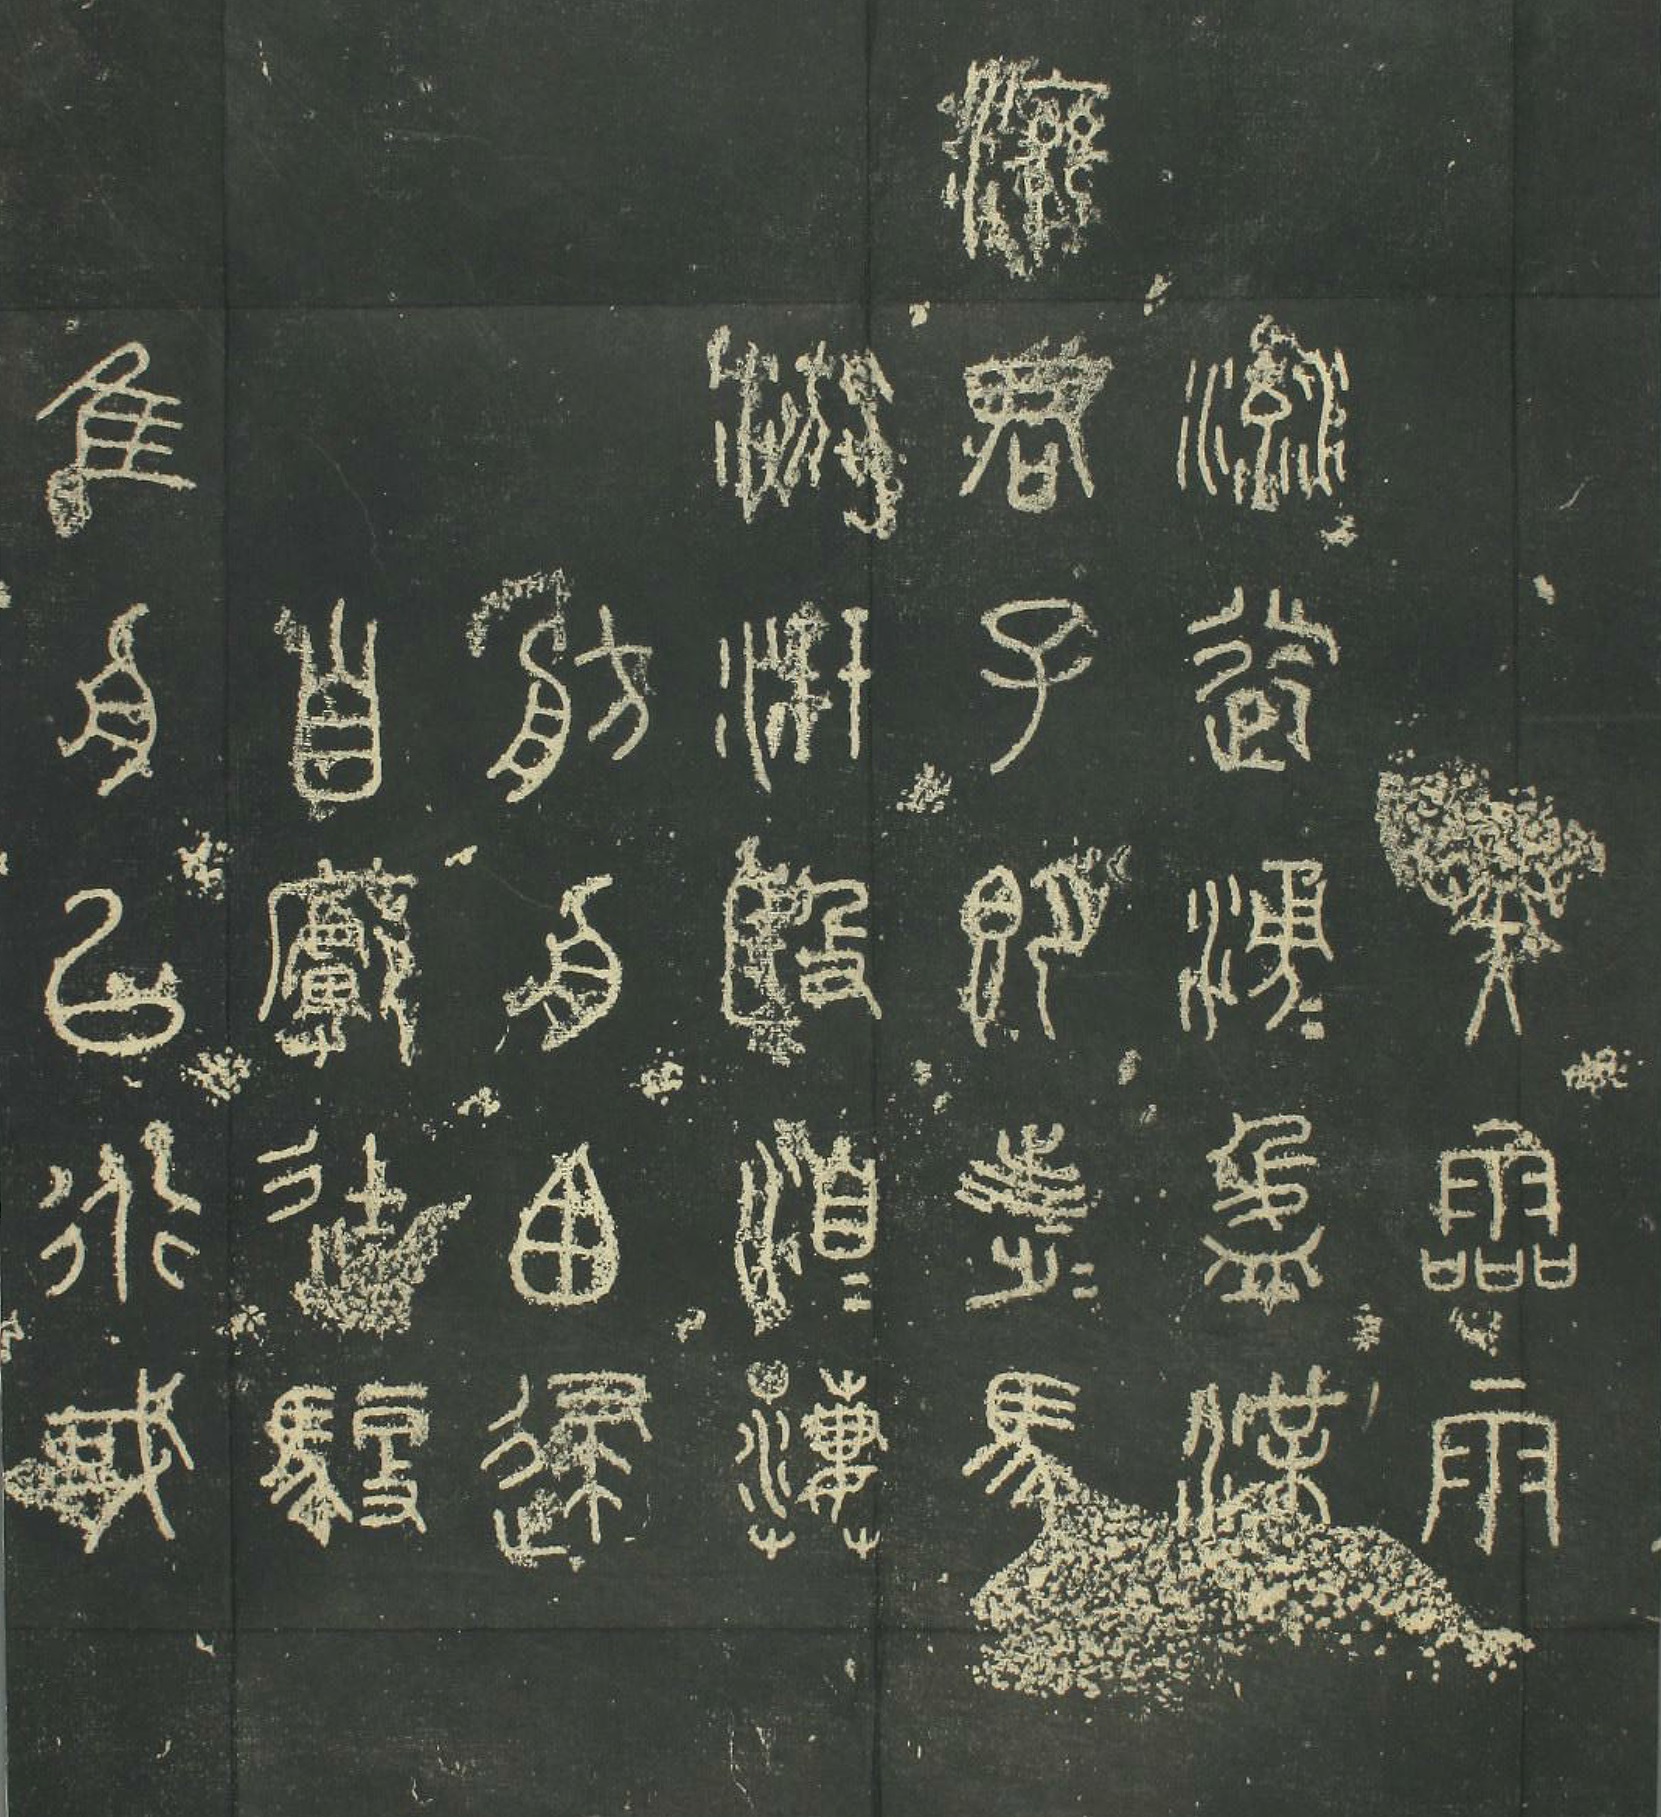 癸霝雨
流迄湧=盈渫
濟君子即涉=馬
流汧殹洎=淒=
舫舟囪逮
自廓徒馭
隹舟以衍或